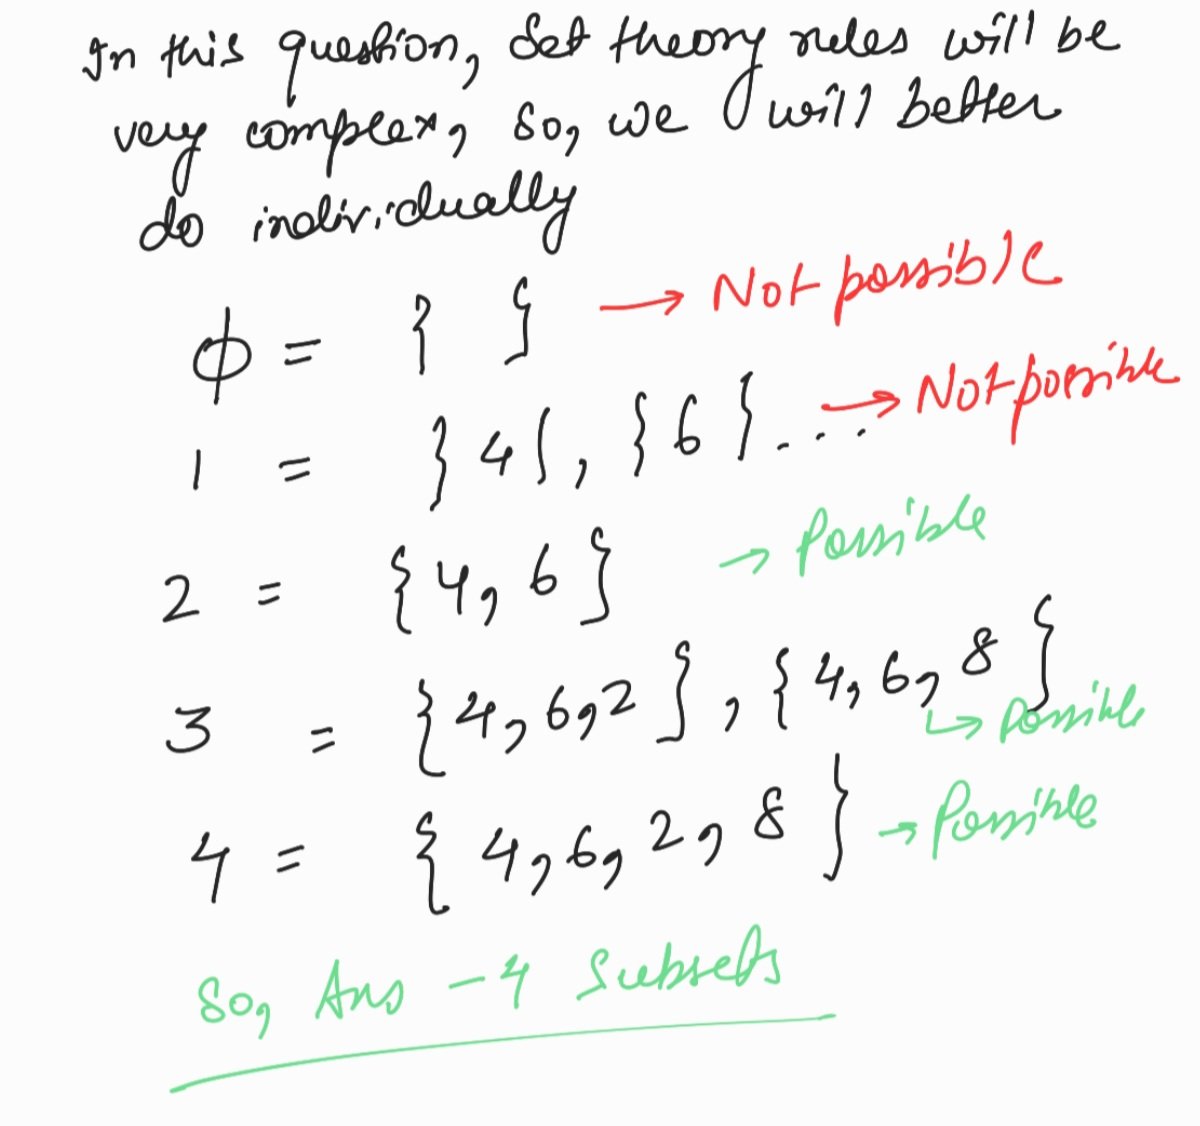 In this question, Set theory rules will be
very complex, so, we will better
do individually
ϕ = { } → Not possible
1 = }4{, {6}... → Not possible
2 = {4, 6} → Possible
3 = {4, 6, 2}, {4, 6, 8}
↳ Possible
4 = {4, 6, 2, 8} → Possible
So, Ans - 4 Subsets